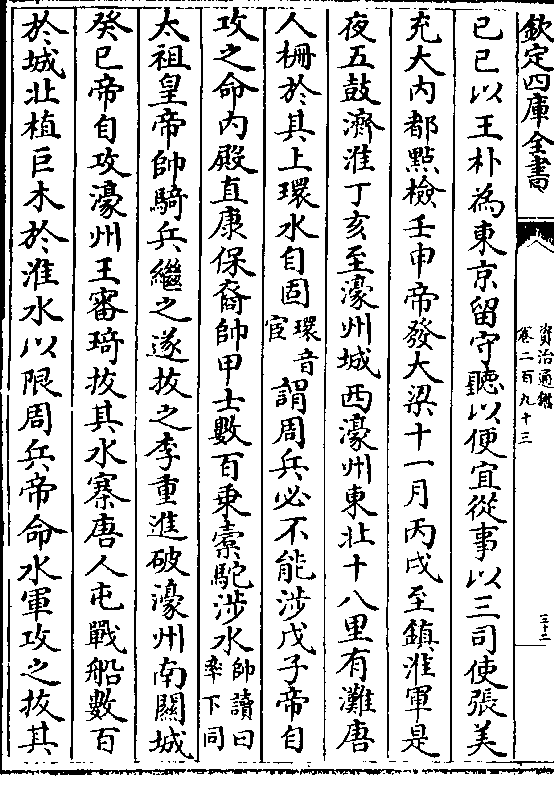 欽定四庫全書
資治通鑑
卷二百九十三
三十二
己巳以王朴為東京留守聽以便宜從事以三司使張美
充大內都點檢壬申帝發大梁十一月丙戌至鎮淮軍是
夜五鼓濟淮丁亥至濠州城西濠州東北十八里有灘唐
人柵於其上環水自固環音宦謂周兵必不能涉戊子帝自
攻之命內殿直康保裔帥甲士數百乘橐駝涉水帥讀曰率下同
太祖皇帝帥騎兵繼之遂拔之李重進破濠州南關城
癸巳帝自攻濠州王審琦拔其水寨唐人屯戰船數百
於城北植巨木於淮水以限周兵帝命水軍攻之拔其